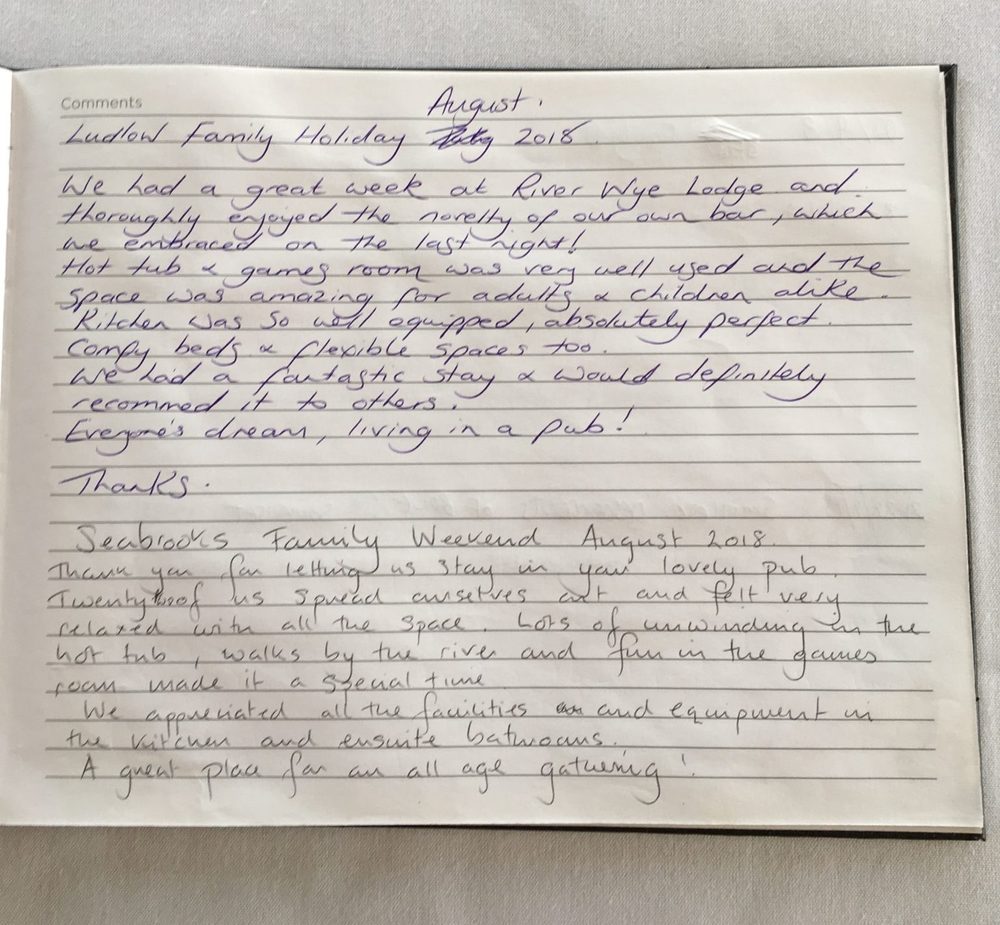 Comments
August.
Ludlow Family Holiday 2018.
We had a great week at River Wye Lodge and
thoroughly enjoyed the novelty of our own bar, which
we embraced on the last night!
Hot tub & games room was very well used and the
space was amazing for adults & children alike.
Kitchen was so well equipped, absolutely perfect.
Comfy beds & flexible spaces too.
We had a fantastic stay & would definitely
recommed it to others.
Everyone's dream, living in a pub!
Thanks.
Seabrooks Family Weekend August 2018.
Thank you for letting us stay in your lovely pub.
Twenty of us spread ourselves out and felt very
relaxed with all the space. Lots of unwinding in the
hot tub, walks by the river and fun in the games
room made it a special time
We appreciated all the facilities and equipment in
the kitchen and ensuite bathrooms.
A great place for an all age gathering!